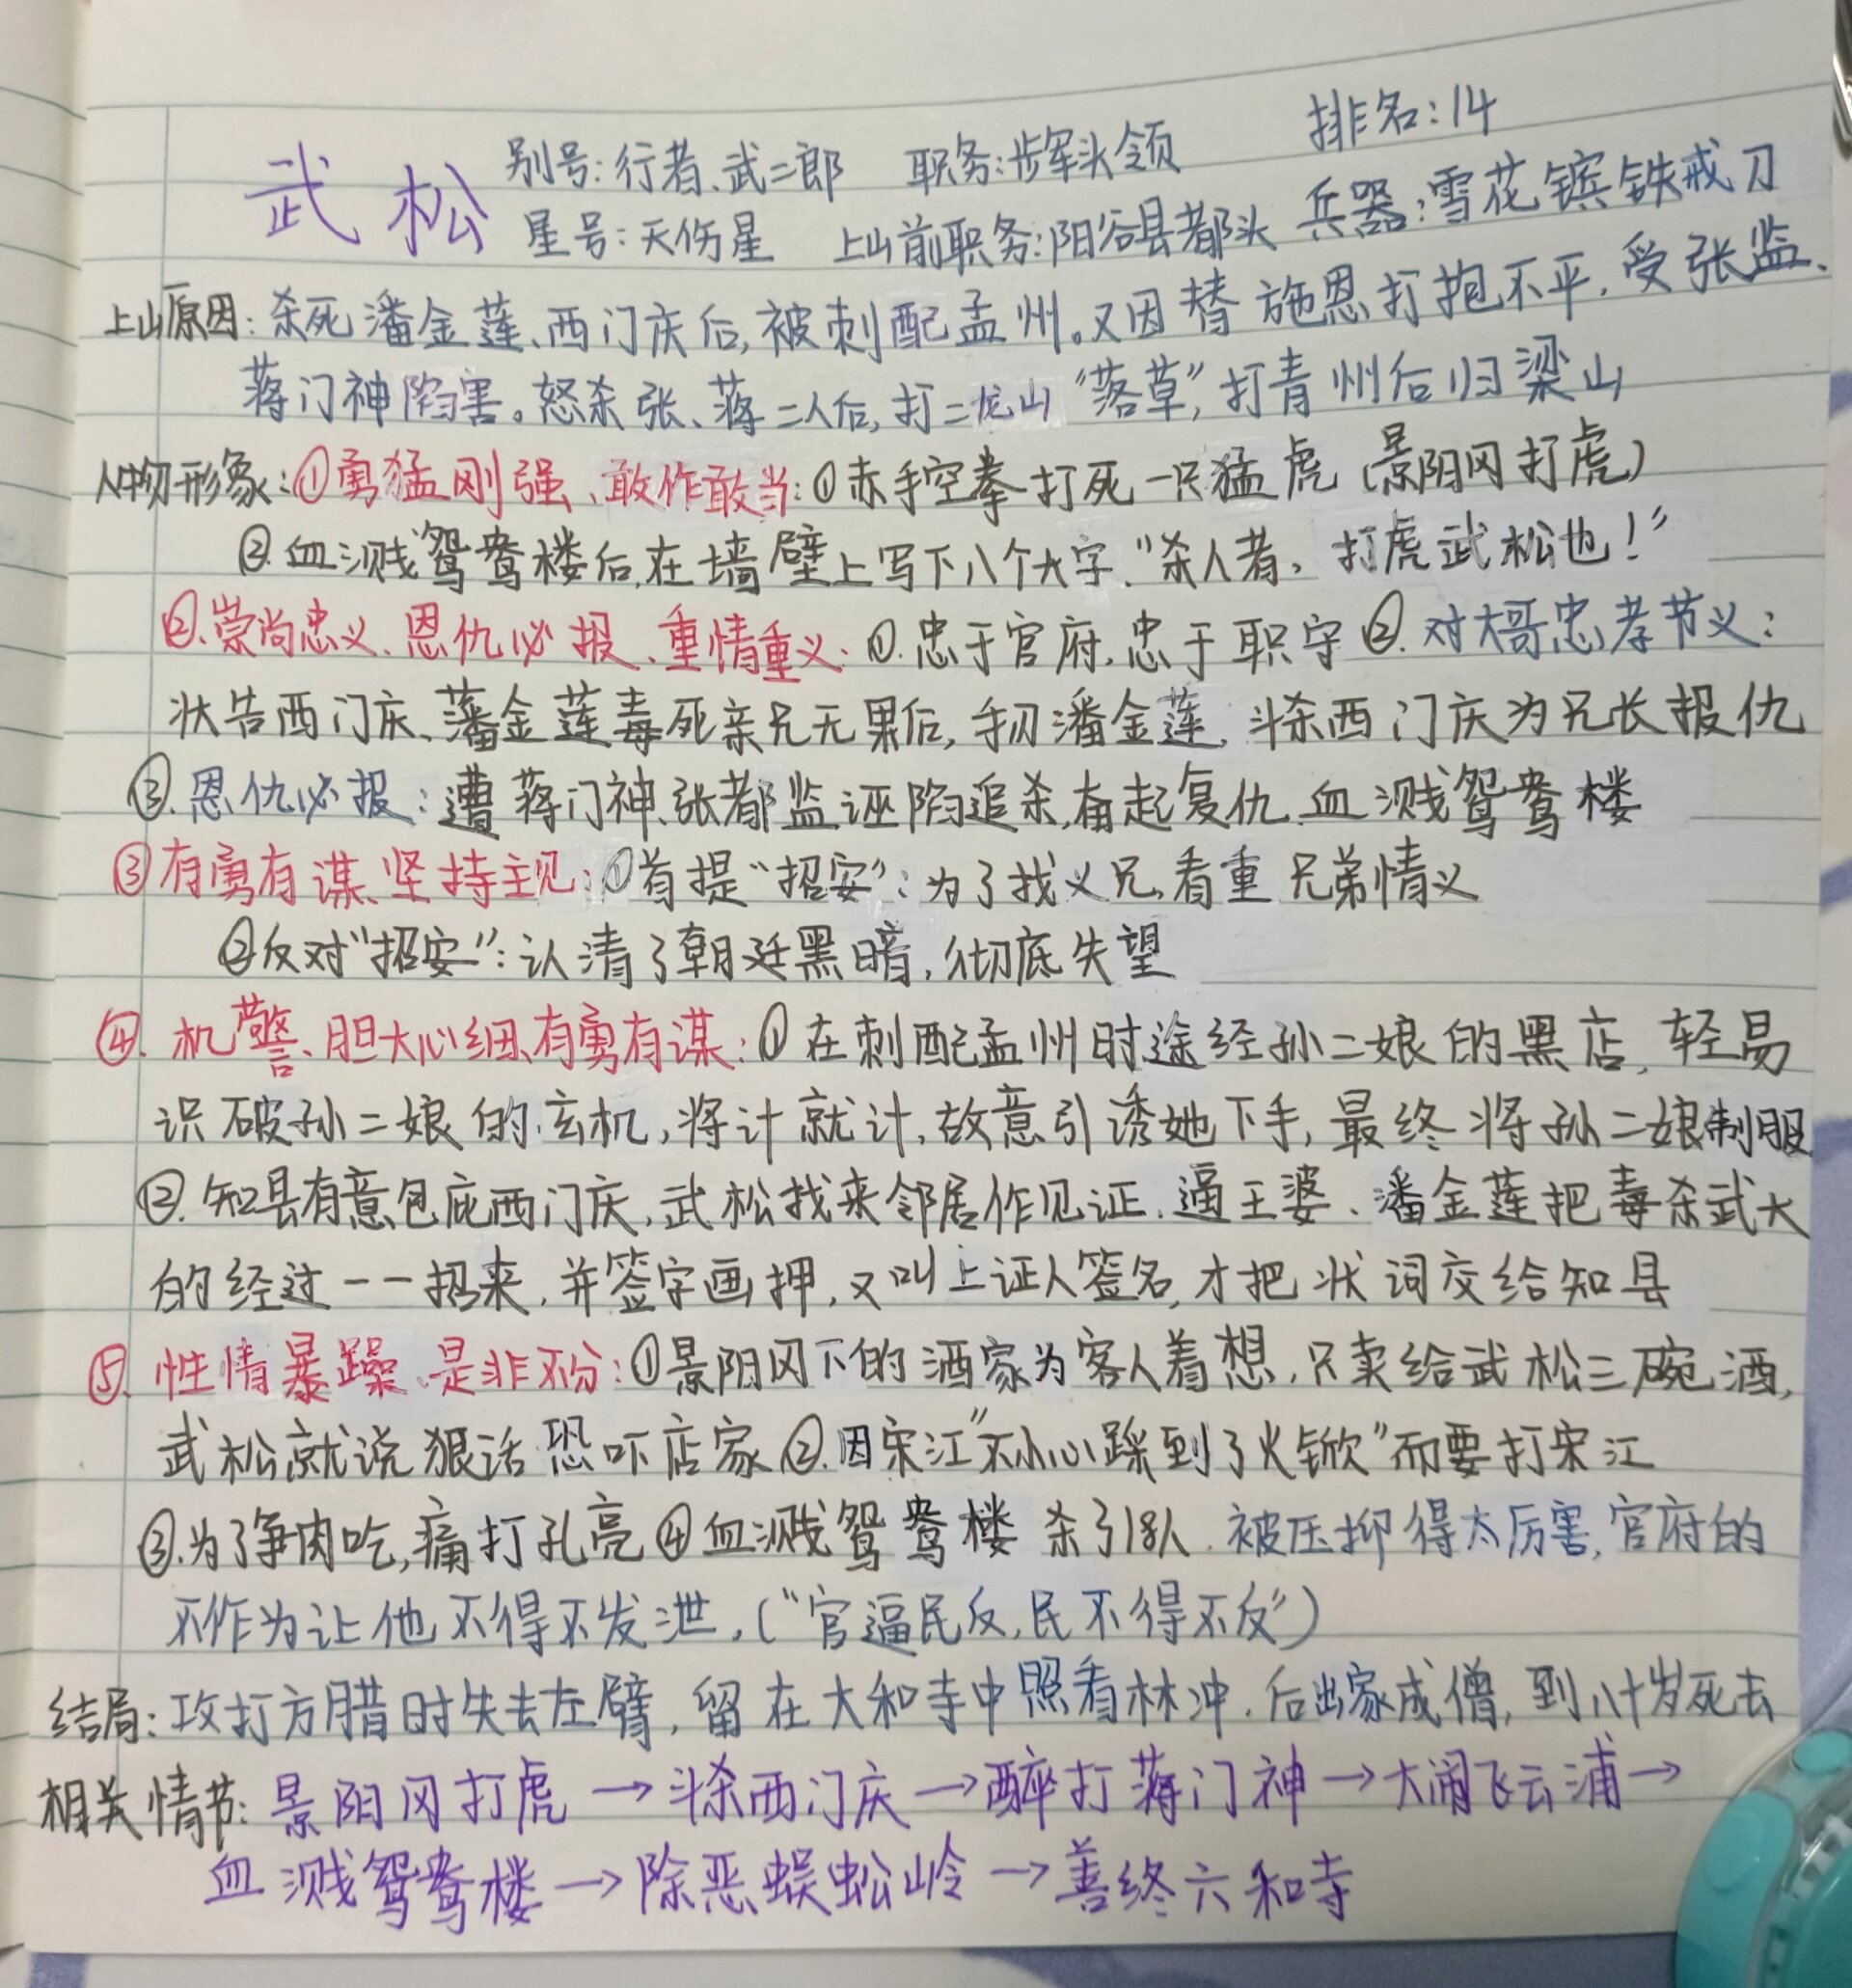 武松 别号:行者、武二郎 职务:步军头领 排名:14
星号:天伤星 上山前职务:阳谷县都头 兵器:雪花镔铁戒刀
上山原因:杀死潘金莲、西门庆后,被刺配孟州。又因替施恩打抱不平,受张监、
蒋门神陷害。怒杀张、蒋二人后,打二龙山“落草”,打青州后归梁山
人物形象:①勇猛刚强、敢作敢当:①赤手空拳打死一只猛虎(景阳冈打虎)
②血溅鸳鸯楼后,在墙壁上写下八个大字,“杀人者,打虎武松也!”
②.崇尚忠义、恩仇必报、重情重义:①.忠于官府,忠于职守②.对大哥忠孝节义:
状告西门庆、潘金莲毒死亲兄无果后,手刃潘金莲,斗杀西门庆为兄长报仇
③.恩仇必报:遭蒋门神、张都监诬陷追杀,奋起复仇,血溅鸳鸯楼
③有勇有谋、坚持主见:①首提“招安”:为了找义兄,看重兄弟情义
②反对“招安”:认清了朝廷黑暗,彻底失望
④.机警、胆大心细、有勇有谋:①在刺配孟州时途经孙二娘的黑店,轻易
识破孙二娘的玄机,将计就计,故意引诱她下手,最终将孙二娘制服
②.知县有意包庇西门庆,武松找来邻居作见证,逼王婆、潘金莲把毒杀武大
的经过一一招来,并签字画押,又叫上证人签名,才把状词交给知县
⑤.性情暴躁、是非不分:①景阳冈下的酒家为客人着想,只卖给武松三碗酒,
武松就说狠话恐吓店家②.因宋江“不小心踩到了火锨”而要打宋江
③.为了争肉吃,痛打孔亮④血溅鸳鸯楼 杀了18人.被压抑得太厉害,官府的
不作为让他不得不发泄,(“官逼民反,民不得不反”)
结局:攻打方腊时失去左臂,留在六和寺中照看林冲,后出家成僧,到八十岁死去
相关情节:景阳冈打虎→斗杀西门庆→醉打蒋门神→大闹飞云浦→
血溅鸳鸯楼→除恶蜈蚣岭→善终六和寺